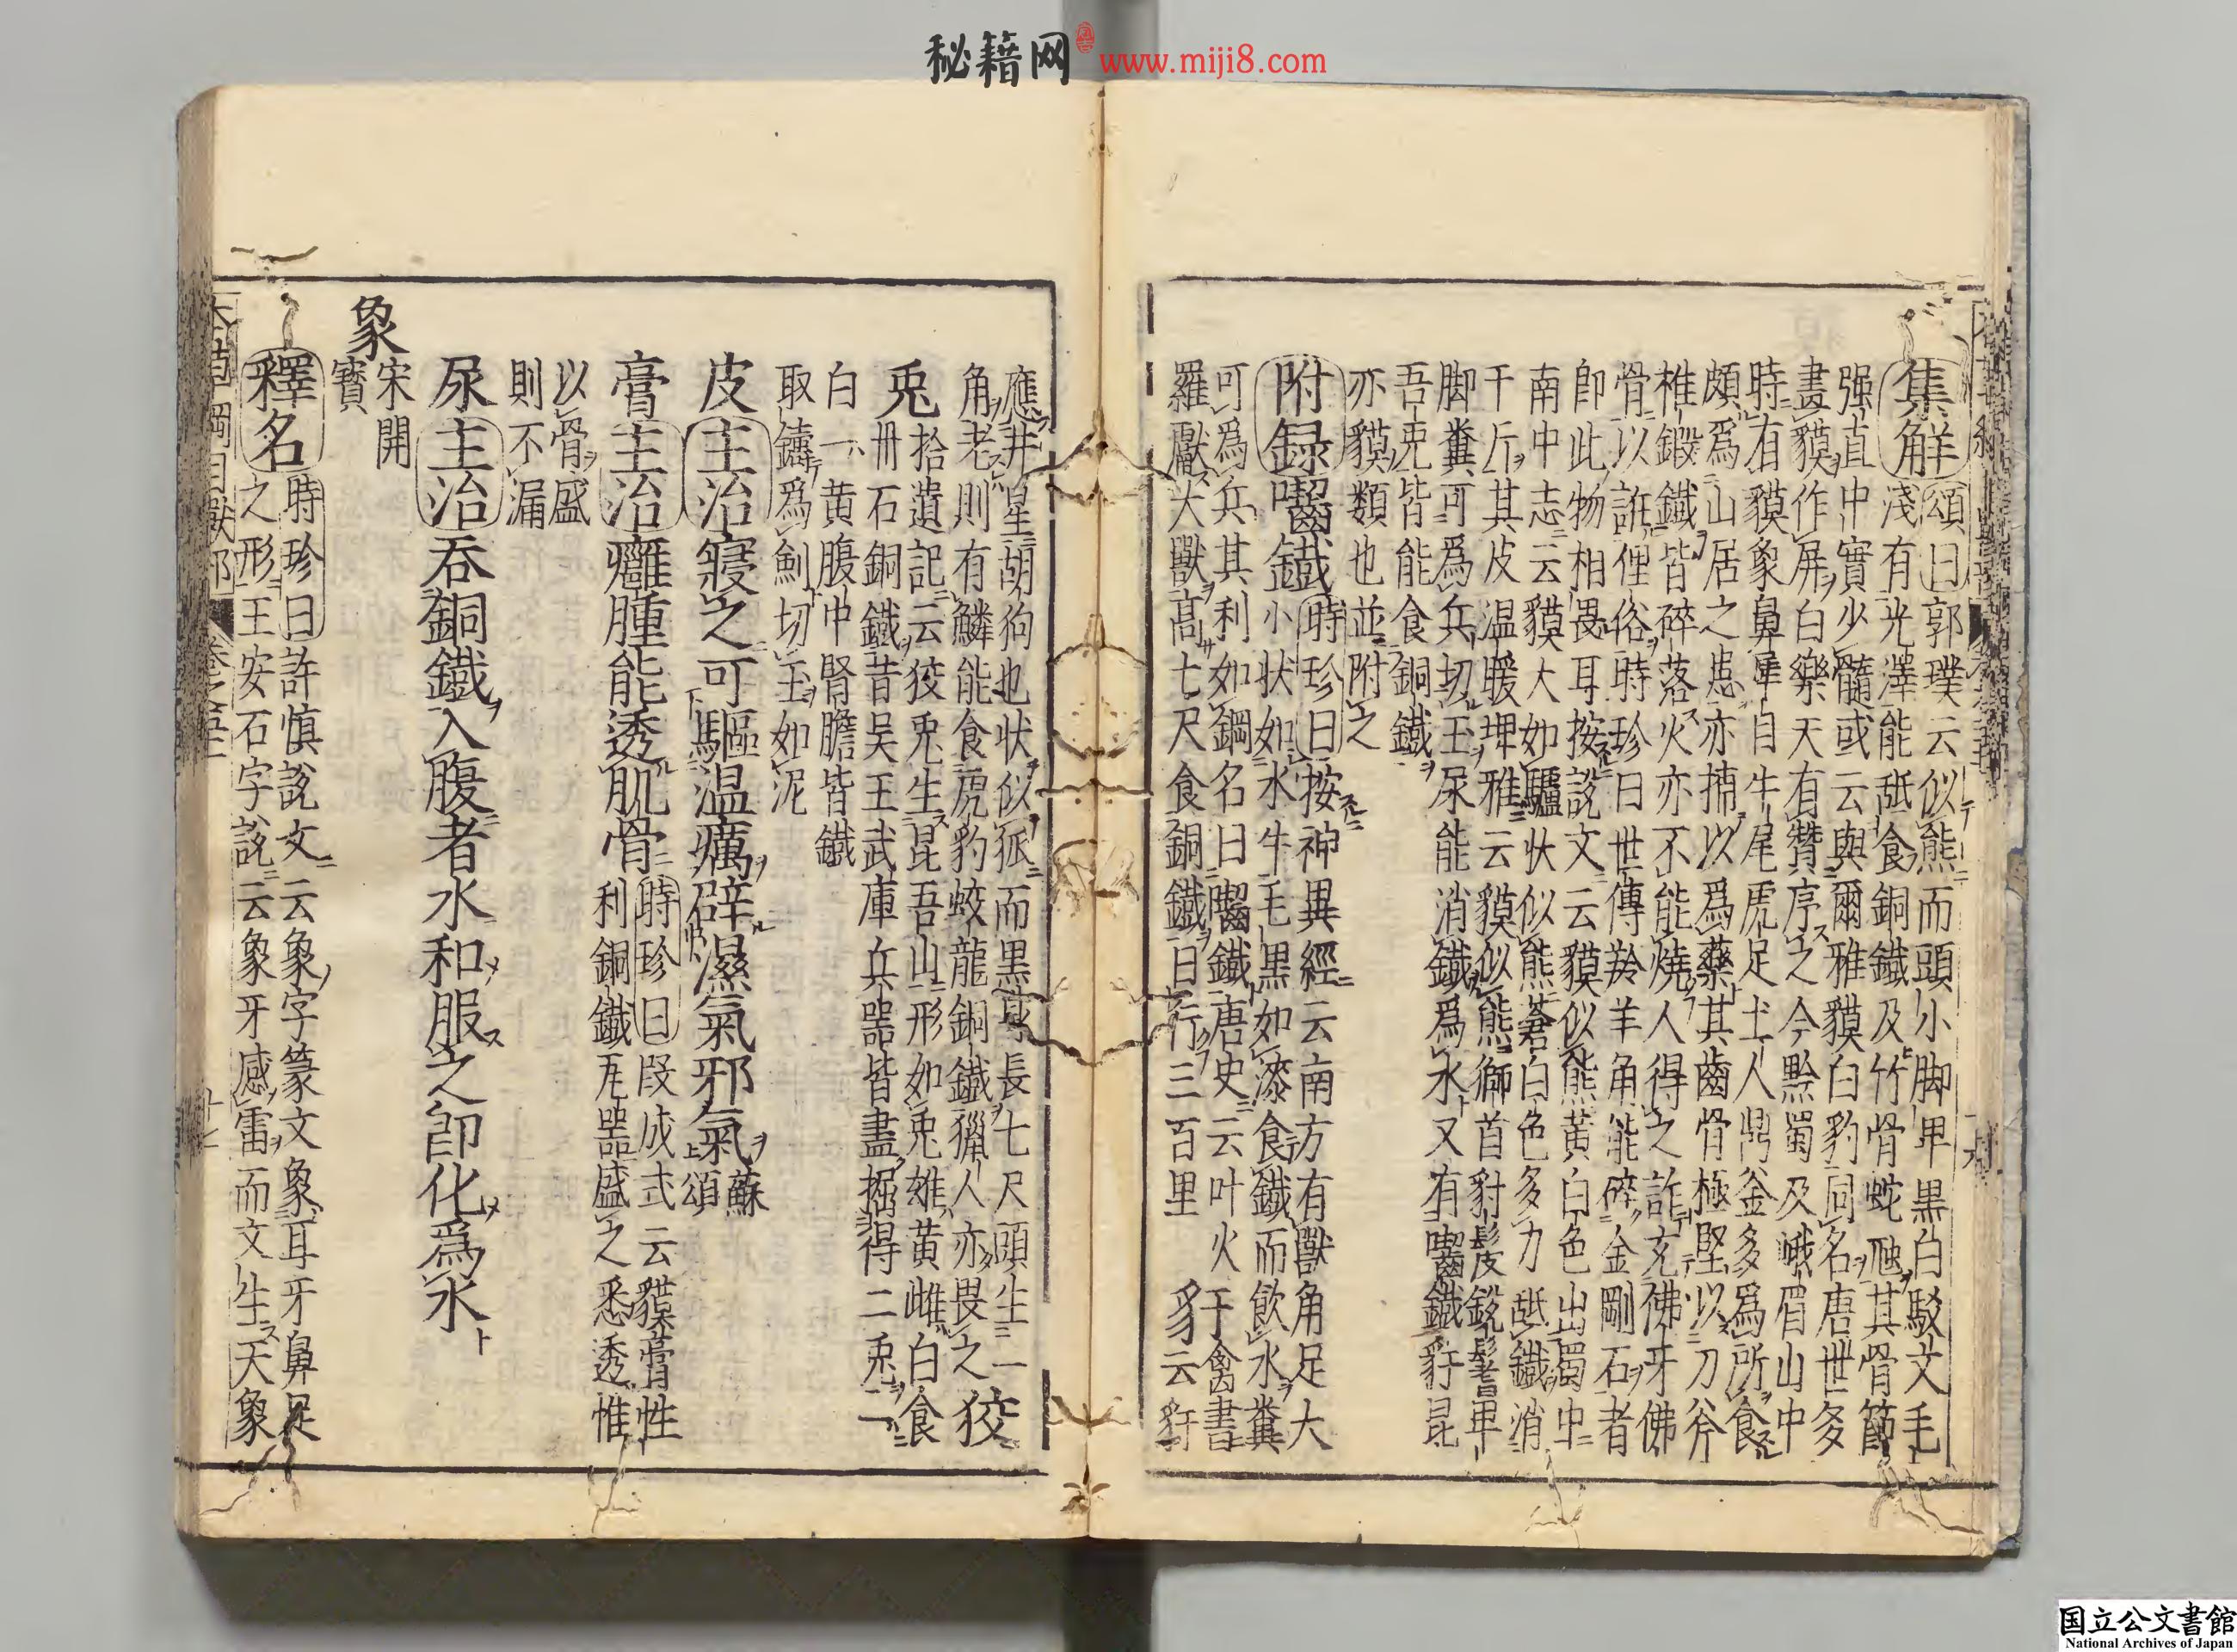 秘籍网 www.miji8.com
集解 頌曰郭璞云似熊而頭小脚卑黒白駁文毛
淺有光澤能舐食銅鐵及竹骨蛇虺其骨節
强直中實少髓或云與爾雅貘白豹同名唐世多
畫貘作屏白樂天有贊序之今黔蜀及峨眉山中
時有貘象鼻犀目牛尾虎足土人鼎釜多爲所食
頗爲山居之患亦捕以爲藥其齒骨極堅以刀斧
椎鍛鐵皆碎落火亦不能燒人得之詐充佛牙佛
骨以誑俚俗時珍曰世傳羚羊角能碎金剛石者
即此物相畏耳按說文云貘似熊黄白色出蜀中
南中志云貘大如驢狀似熊蒼白色多力舐鐵消
千斤其皮温暖埤雅云貘似熊獅首豺髲鋭鬐卑
脚糞可爲兵切玉尿能消鐵爲水又有囓鐵豻昆
吾兎皆能食銅鐵
亦貘類也並附之
附録 囓鐵 時珍曰按神異經云南方有獸角足大
小状如水牛毛黒如漆食鐵而飲水糞
可爲兵其利如鋼名曰囓鐵唐史云吐火
羅獻大獸高七尺食銅鐵日行三百里 豻 禽書云豻
應井星胡狗也状似狐而黒身長七尺頭生一
角老則有鱗能食虎豹蛟龍銅鐵獵人亦畏之 狡
兎 拾遺記云狡兎生昆吾山形如兎雄黄雌白食
丹石銅鐵昔吴王武庫兵器皆盡掘得二兎一
白一黄腹中腎膽皆鐵
取鑄爲劍切玉如泥
皮 主治 寢之可驅温癘辟濕氣邪氣 蘇頌
膏 主治 癰腫能透肌骨 時珍曰段成式云貘膏性
利銅鐵瓦器盛之悉透惟
以骨盛
則不漏
尿 主治 吞銅鐵入腹者水和服之即化爲水
象 宋開寶
釋名 時珍曰許慎說文云象字篆文象耳牙鼻足
之形王安石字說云象牙感雷而文生天象
国立公文書館
National Archives of Japan